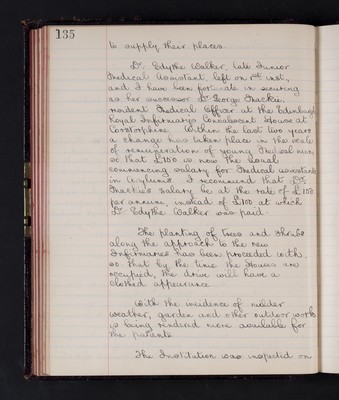 135
to supply their places.
Dr. Edythe Walker, late Junior
Medical Assistant, left on inst,
and I have been fortunate in securing
as her successor Dr George Mackie,
resident Medical Officer at the Edinburgh
Royal Infirmary's Convalescent House at
Corstorphine. Within the last two years
a change has taken place in the scale
of remuneration of young Medical men
so that £150 is now the usual
commencing salary for Medical assistants
in Asylums. I recommend that Dr
Mackie's salary be at the rate of £150
per annum, instead of £100 at which
Dr Edythe Walker was paid.
The planting of trees and shrubs
along the approach to the new
Infirmaries has been proceeded with,
so that by the time the Houses are
occupied, the drive will have a
clothed appearance.
With the incidence of milder
weather, garden and other outdoor work
is being rendered more available for
the patients.
The Institution was inspected on